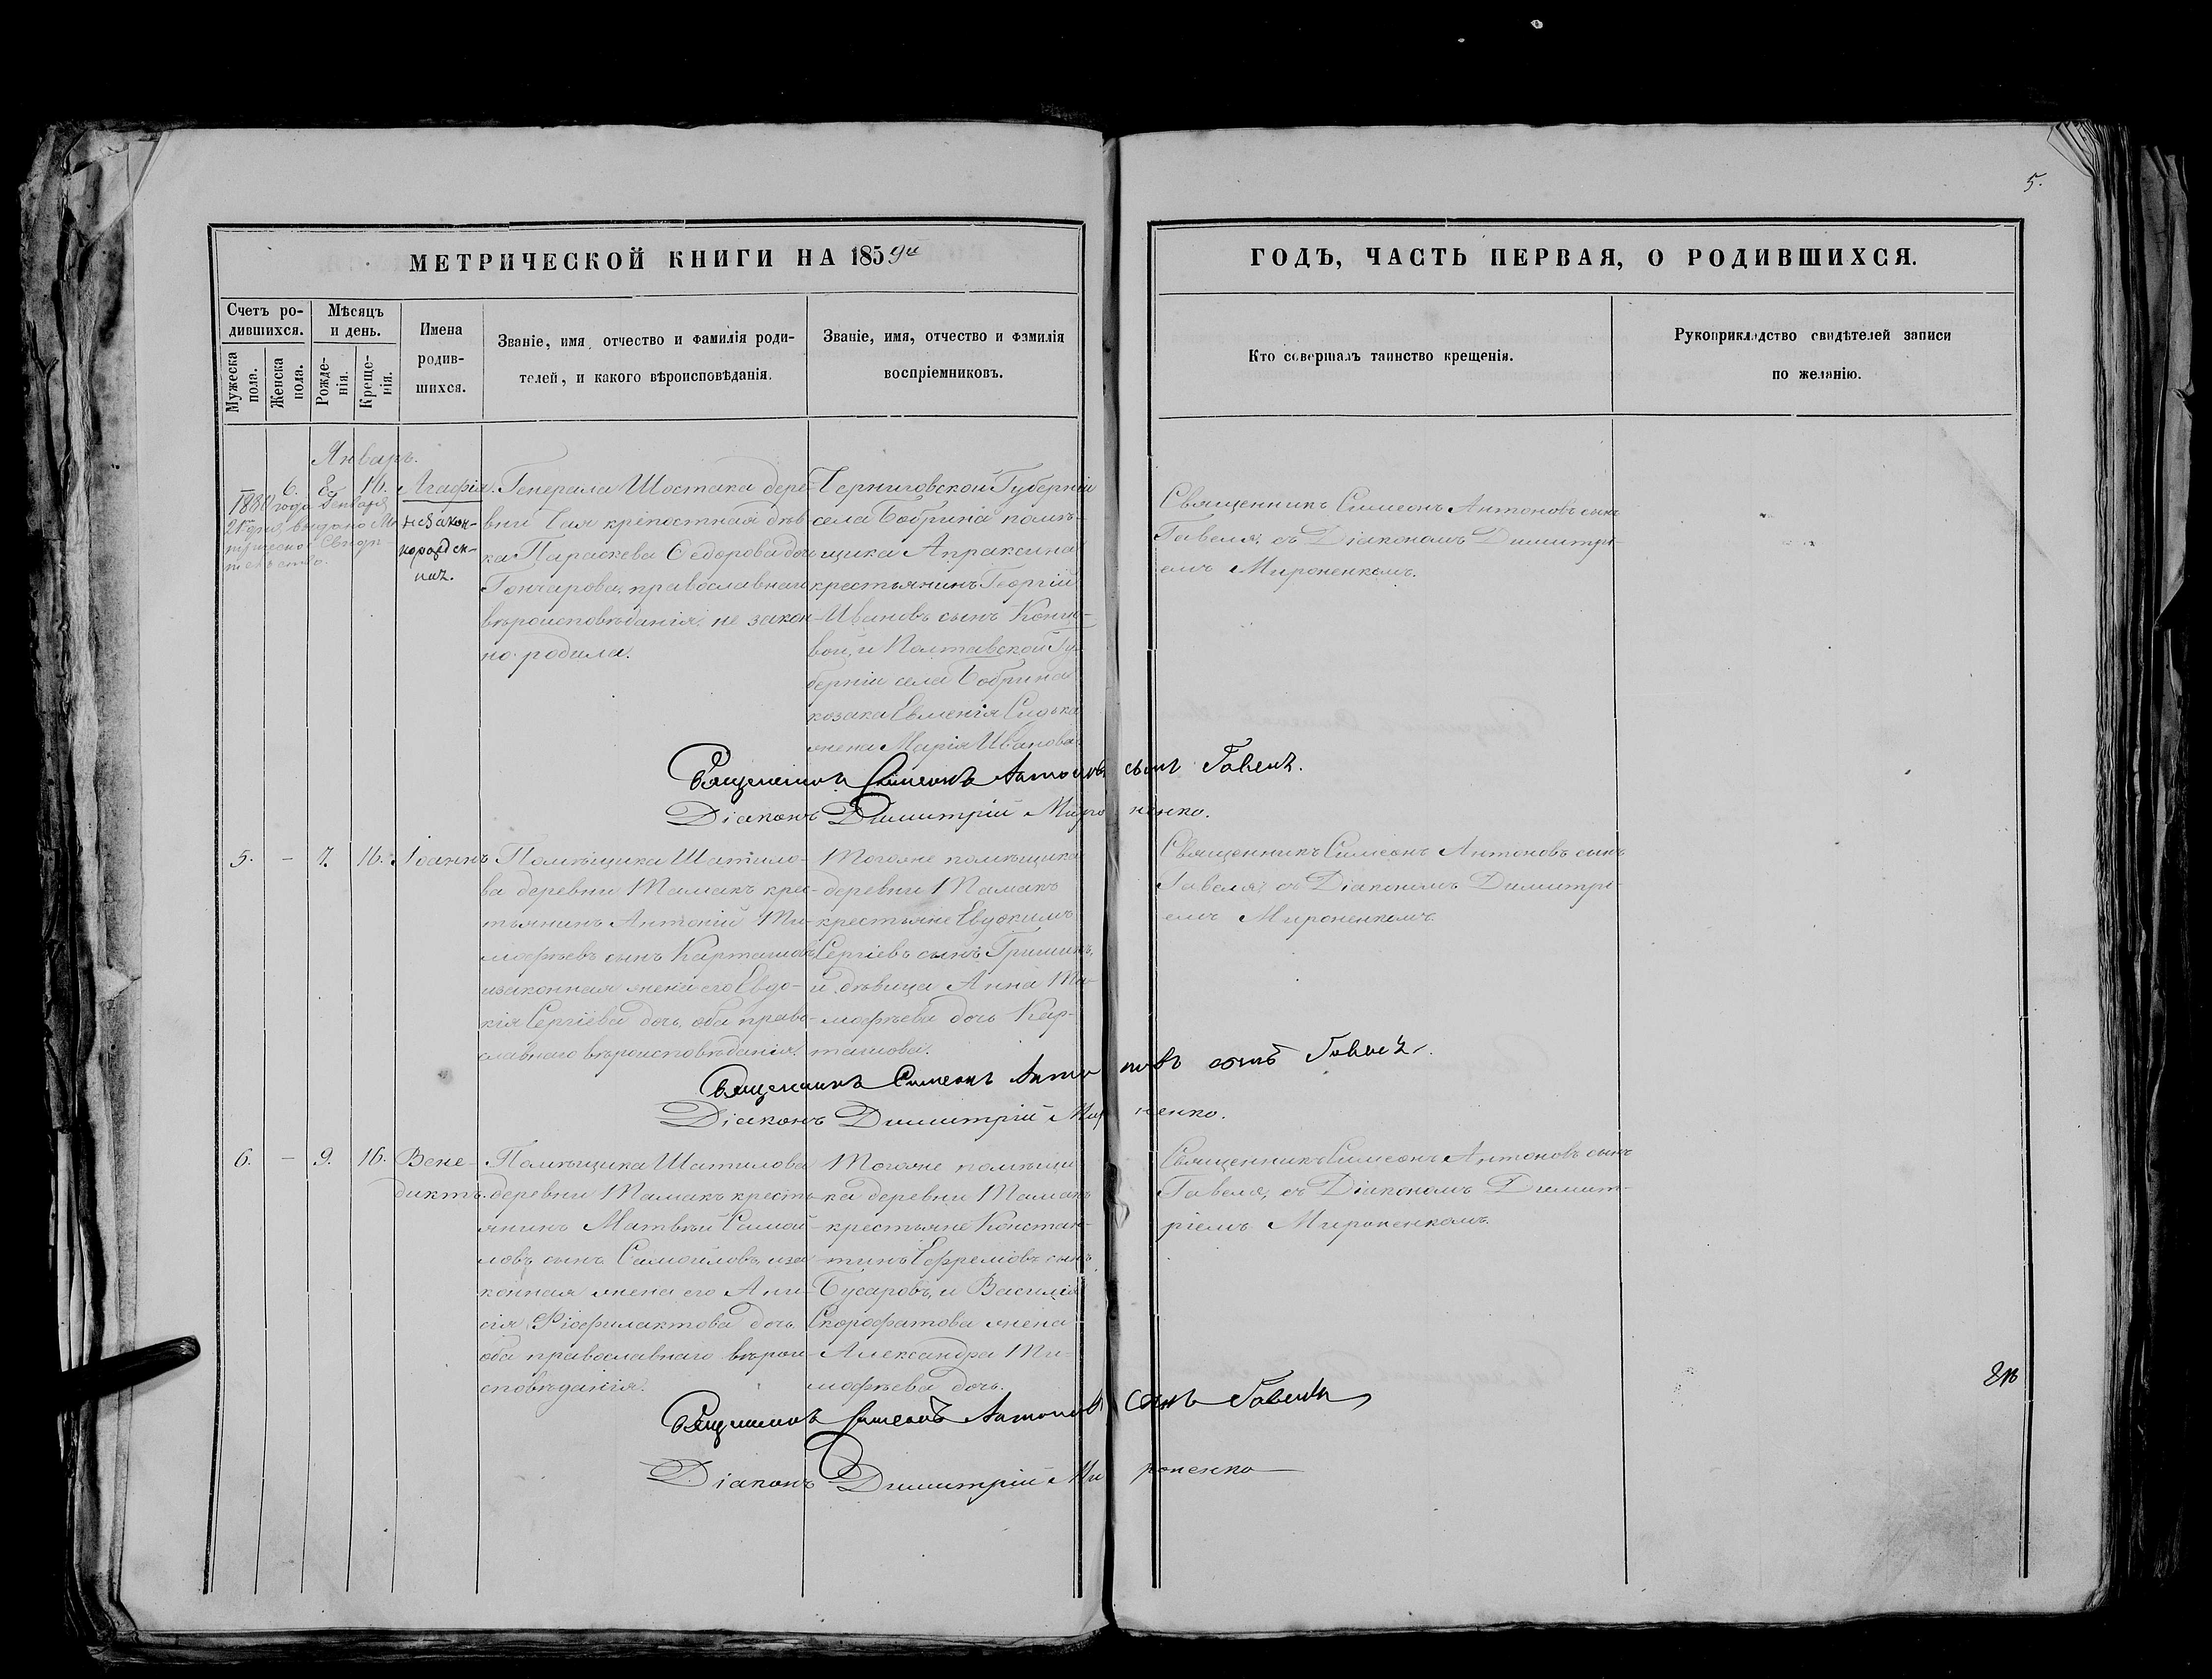 5.
МЕТРИЧЕСКОЙ КНИГИ НА 1859й
ГОДЪ, ЧАСТЬ ПЕРВАЯ, О РОДИВШИХСЯ.
Счетъ родившихся.
Мужеска пола.
Женска пола.
Мѣсяцъ и день.
Рожденія.
Крещенія.
Имена родившихся.
Званіе, имя, отчество и фамилія роди-
телей, и какого вѣроисповѣданія.
Званіе, имя, отчество и фамилія
воспріемниковъ.
Кто совершалъ таинство крещенія.
Рукоприкладство свидѣтелей записи
по желанію.
Январь.
6. 8. 16. Агафія
незакон-
норожден-
ная.
1880 года Генваря
21го дня выдано Ме-
трическо- Свидѣ-
тельство.
Генерала Шостака дере-
вни крѣпостная дѣв-
ка Параскева Ѳедорова дочь
Гончарова, православнаго
вѣроисповѣданія, не закон-
но родила.
Черниговской Губерніи
села Бобрина помѣ-
щика Апраксина
крестьянинъ Георгій
Ивановъ сынъ Конц-
вой, и Полтавской Гу-
берніи села Бобрина
козака Евменія
жена Марія Иванова
Священникъ Симеонъ Антоновъ сынъ
Гавеля, съ Діакономъ Димитрі-
емъ Мироненкомъ.
Священникъ Симеонъ Антоновъ сынъ Гавеля.
Діаконъ Димитрій Мироненко.
5. – 7. 16. Іоаннъ
Помѣщика Шатило-
ва деревни Тамакъ крес-
тьянинъ Антоній Ти-
мофѣевъ сынъ Карташовъ
изаконная жена его Евдо-
кія Сергіева дочь, оба право-
славнаго вѣроисповѣданія.
Тогоже помѣщика
деревни Тамакъ
крестьяне Евдокимъ
Сергіевъ сынъ Гришинъ,
и дѣвица Анна Ти-
мофѣева дочь Кар-
ташова.
Священникъ Симеонъ Антоновъ сынъ
Гавеля, съ Діакономъ Димитрі-
емъ Мироненкомъ.
Священникъ Симеонъ Антоновъ сынъ Гавеля.
Діаконъ Димитрій Мироненко.
6. – 9. 16. Вене-
диктъ.
Помѣщика Шатилова
деревни Тамакъ кресть-
янинъ Матвѣй Самой-
ловъ сынъ Самойловъ, иза-
конная жена его Ани-
сія Ѳіофилактова дочь
оба православнаго вѣрои-
сповѣданія.
Тогоже помѣщи-
ка деревни Тамакъ
крестьяне Констан-
тинъ Ефремовъ сынъ
Бусаровъ, и Василія
Скорофатова жена
Александра Ти-
мофѣева дочь.
Священникъ Симеонъ Антоновъ сынъ
Гавеля, съ Діакономъ Димит-
ріемъ Мироненкомъ.
Священникъ Симеонъ Антоновъ сынъ Гавеля
Діаконъ Димитрій Мироненко